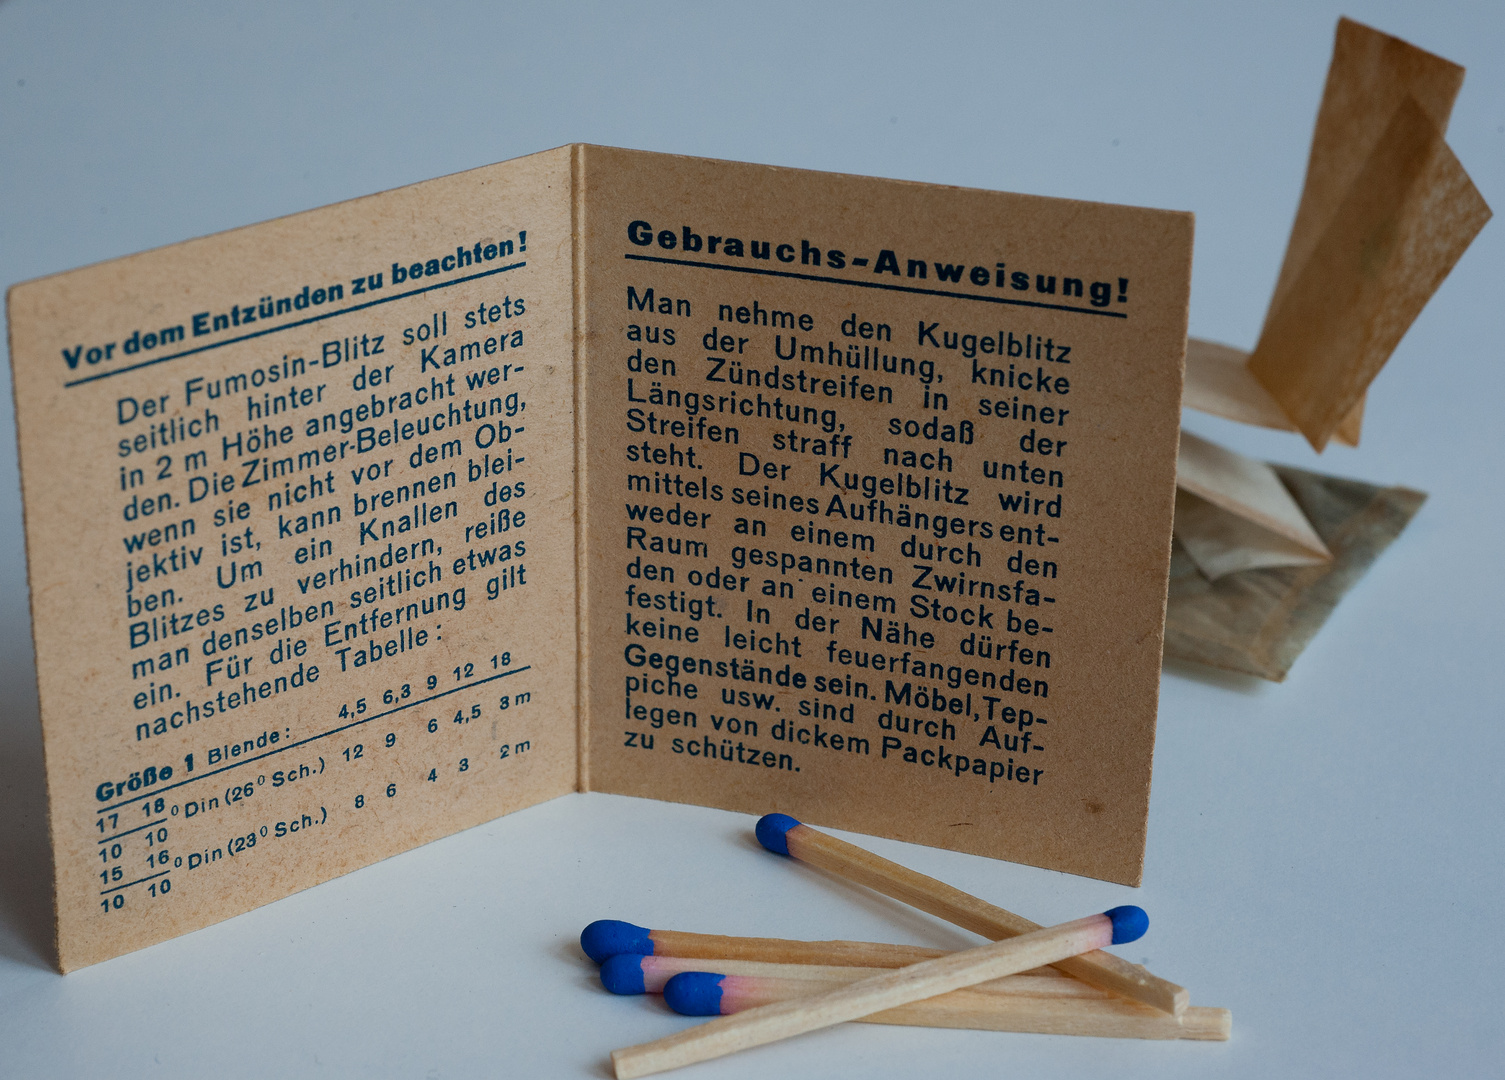 Vor dem Entzünden zu beachten!
Der Fumosin-Blitz soll stets
seitlich hinter der Kamera
in 2 m Höhe angebracht wer-
den. Die Zimmer-Beleuchtung,
wenn sie nicht vor dem Ob-
jektiv ist, kann brennen blei-
ben. Um ein Knallen des
Blitzes zu verhindern, reiße
man denselben seitlich etwas
ein. Für die Entfernung gilt
nachstehende Tabelle:
Größe 1 Blende: 4,5 6,3 9 12 18
17 18 ° Din (26° Sch.) 12 9 6 4,5 3 m
10 10
15 16 ° Din (23° Sch.) 8 6 4 3 2 m
10 10
Gebrauchs-Anweisung!
Man nehme den Kugelblitz
aus der Umhüllung, knicke
den Zündstreifen in seiner
Längsrichtung, sodaß der
Streifen straff nach unten
steht. Der Kugelblitz wird
mittels seines Aufhängers ent-
weder an einem durch den
Raum gespannten Zwirnsfa-
den oder an einem Stock be-
festigt. In der Nähe dürfen
keine leicht feuerfangenden
Gegenstände sein. Möbel, Tep-
piche usw. sind durch Auf-
legen von dickem Packpapier
zu schützen.